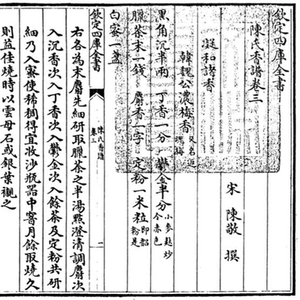 欽定四庫全書
陳氏香譜卷三
宋 陳敬 撰
凝和諸香
韓魏公濃梅香 又名返魂梅
黑角沉半兩 丁香一分 鬱金半分 小麥麩炒令赤色
臘茶末一錢 麝香一字 定粉一米粒 即韶粉是
白蜜一盞
欽定四庫全書
陳氏香譜
卷三
右各為末麝先細研取臘茶之半湯點澄清調麝次
入沉香次入丁香次入鬱金次入餘茶及定粉共研
細乃入蜜使稀稠得宜收沙瓶器中窨月餘取燒久
則益佳燒時以雲母石或銀葉襯之